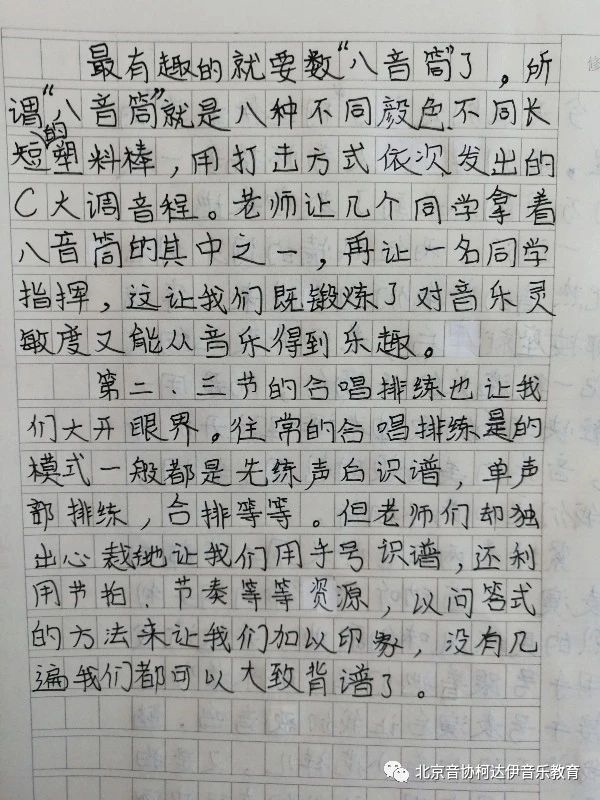 最有趣的就要数“八音筒”了，所
谓“八音筒”就是八种不同颜色不同长
短的塑料棒，用打击方式依次发出的
C大调音程。老师让几个同学拿着
八音筒的其中之一，再让一名同学
指挥，这让我们既锻炼了对音乐灵
敏度又能从音乐得到乐趣。
第二、三节的合唱排练也让我
们大开眼界。往常的合唱排练是的
模式一般都是先练声白识谱，单声
部排练，合排等等。但老师们却独
出心裁地让我们用手号识谱，还利
用节拍、节奏等等资源，以问答式
的方法来让我们加以印象，没有几
遍我们都可以大致背谱了。
北京音协柯达伊音乐教育